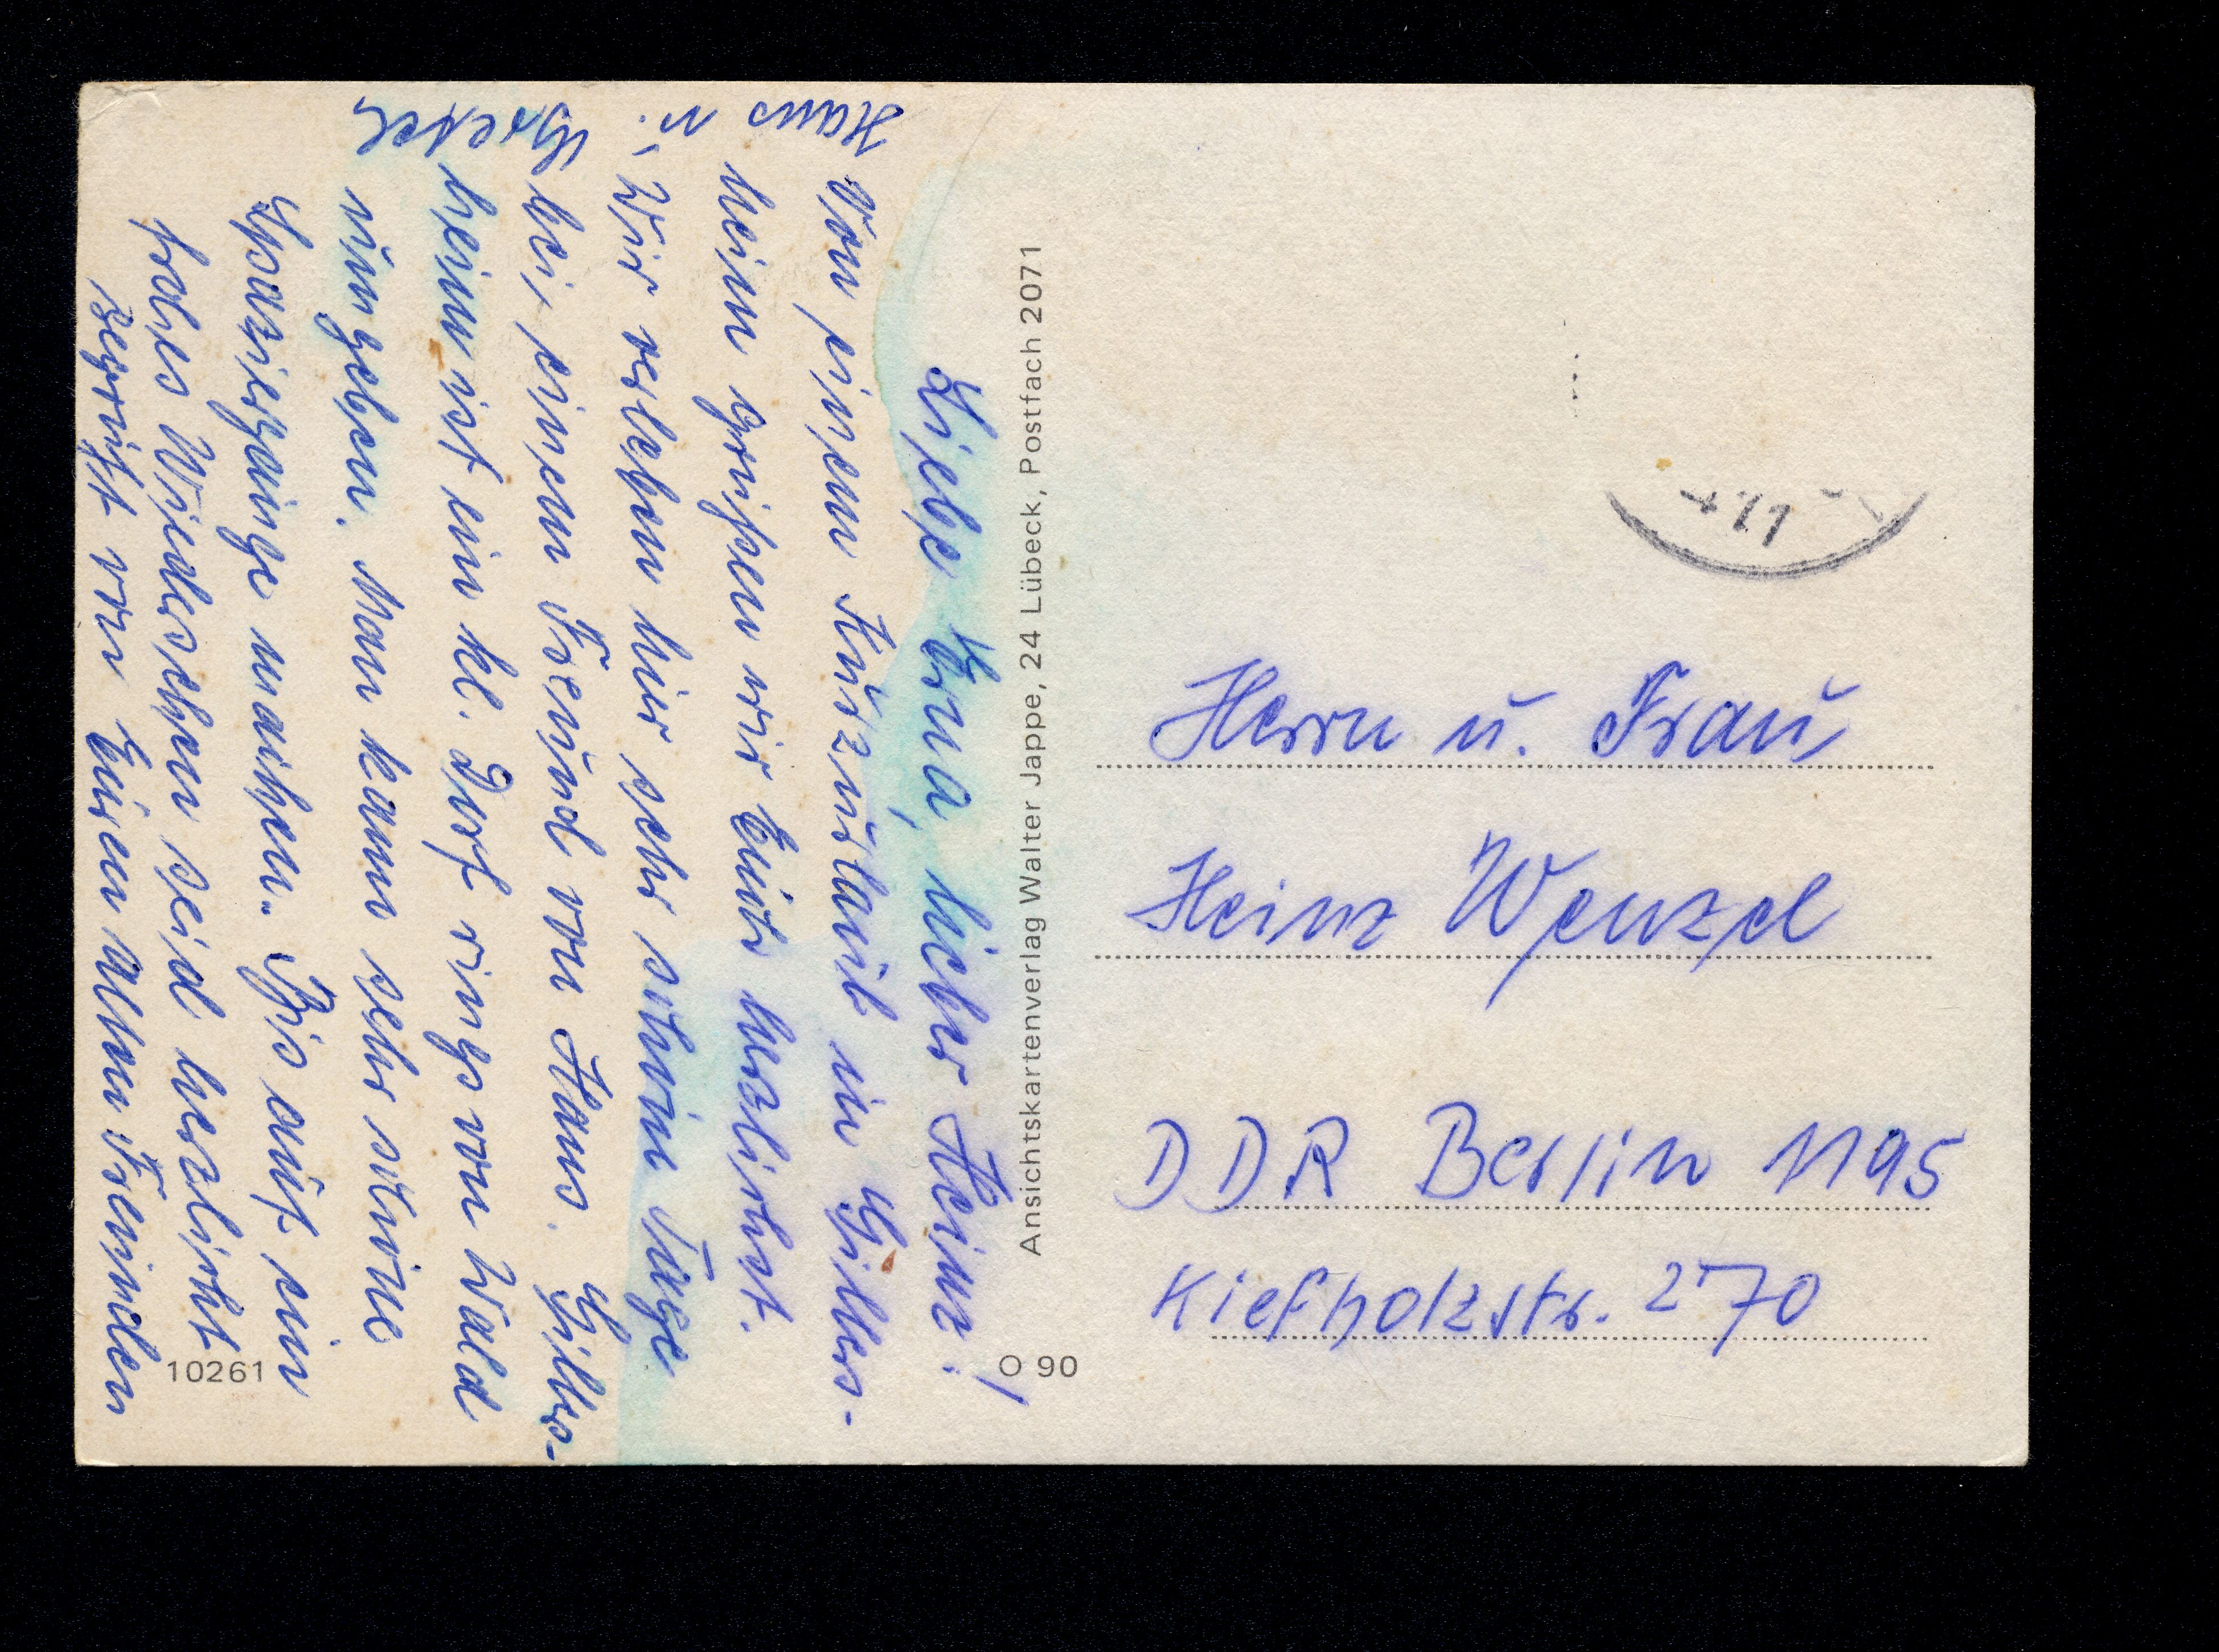 Liebe Erna, lieber Heinz!
Von einem Kurzurlaub in Gillers-
heim grüßen wir Euch herzlichst.
Wir verleben hier sehr schöne Tage
bei einem Freund von Hans. Gillers-
heim ist ein kl. Dorf rings von Wald
umgeben. Man kann sehr schöne
Spaziergänge machen. Bis auf ein
frohes Wiedersehen seid herzlichst
gegrüßt von Euren alten Freunden
Hans u. Gretel
Ansichtskartenverlag Walter Jappe, 24 Lübeck, Postfach 2071
10261
O 90
Herrn u. Frau
Heinz Wenzel
DDR Berlin 1195
Kiefholzstr. 270